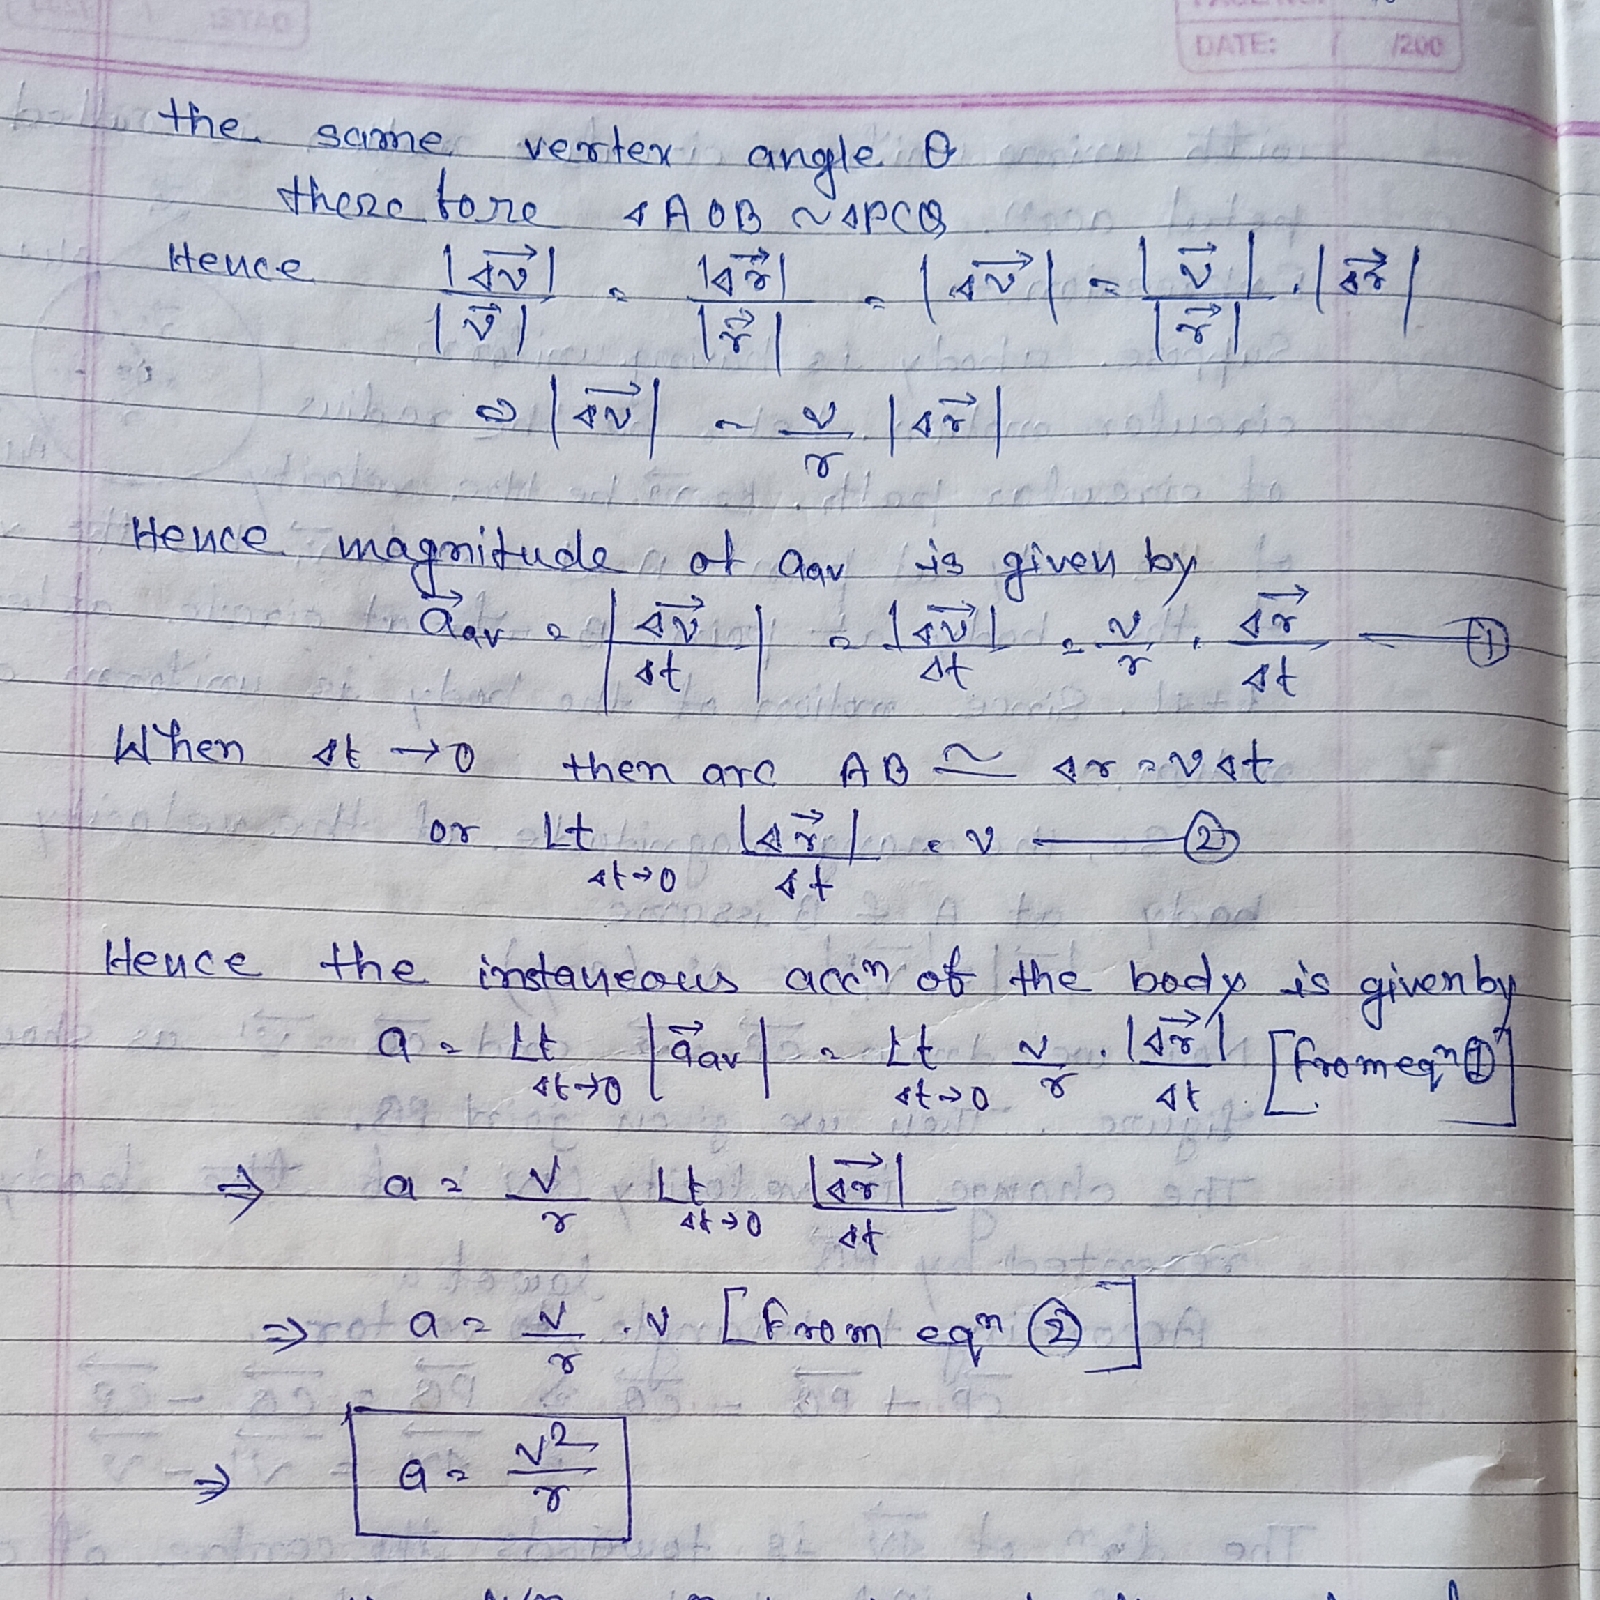 DATE: / /200
the same vertex angle θ
therefore ΔAOB ~ ΔPCQ
Hence |Δv⃗| / |v⃗| = |Δr⃗| / |r⃗| = |Δv⃗| = |v⃗| / |r⃗| . |Δr⃗|
⇒ |Δv⃗| = v/r |Δr⃗|
Hence magnitude of aav is given by
a⃗av = |Δv⃗ / Δt| = |Δv⃗| / Δt = v/r . Δr⃗ / Δt — ①
When Δt → 0 then arc AB ≅ Δr = vΔt
or Lt Δt→0 |Δr⃗| / Δt = v — ②
Hence the instaneous accⁿ of the body is given by
a = Lt Δt→0 |a⃗av| = Lt Δt→0 v/r . |Δr⃗| / Δt [From eqⁿ ①]
⇒ a = v/r Lt Δt→0 |Δr⃗| / Δt
⇒ a = v/r . v [From eqⁿ ②]
⇒ a = v²/r